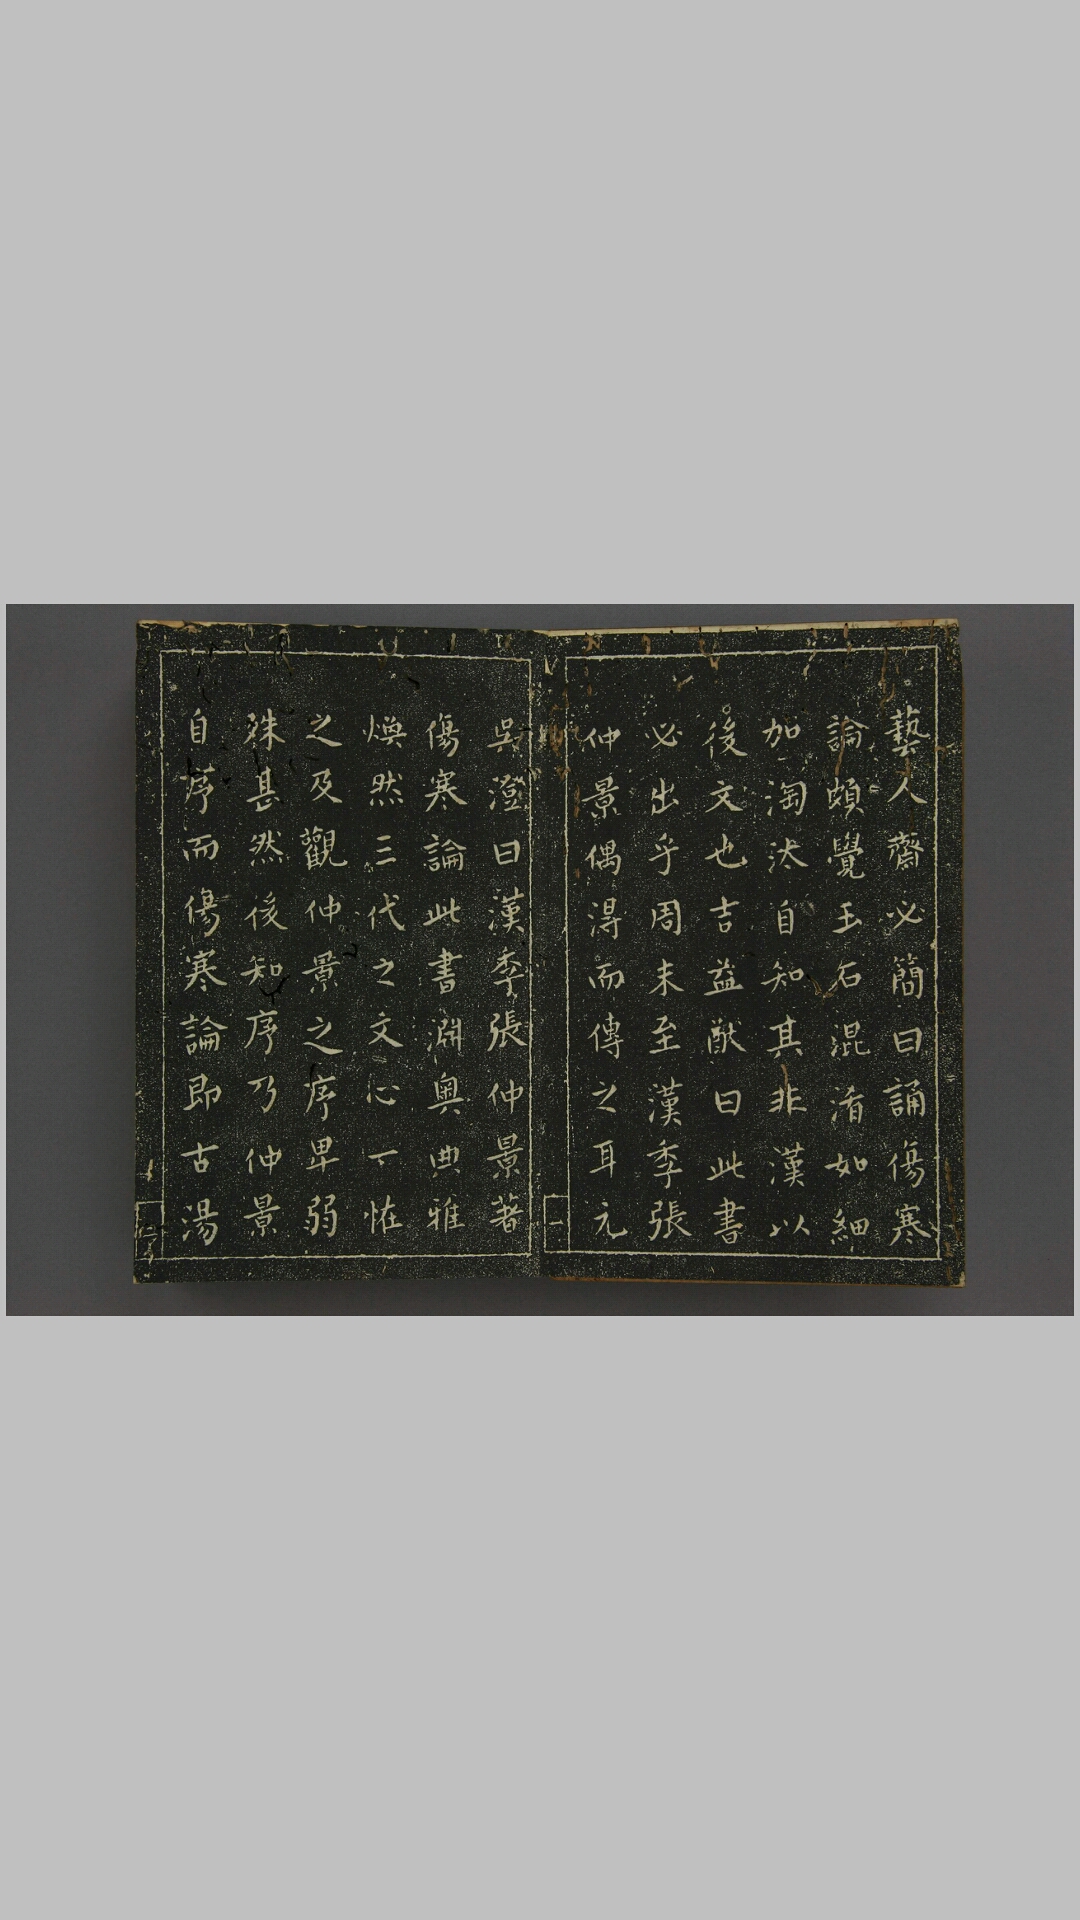 藝人齋必簡曰誦傷寒
論頗覺玉石混淆如細
加淘汰自知其非漢以
後文也吉益猷曰此書
必出乎周末至漢季張
仲景偶得而傳之耳元
一
吳澄曰漢季張仲景著
傷寒論此書淵奧典雅
煥然三代之文心下恠
之及觀仲景之序卑弱
殊甚然後知序乃仲景
自序而傷寒論即古湯